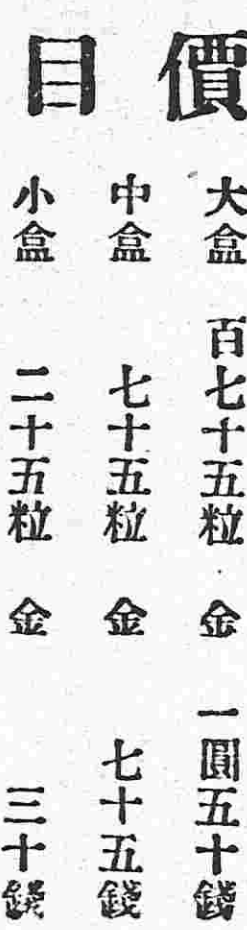 價目
大盒 百七十五粒 金 一圓五十錢
中盒 七十五粒 金 七十五錢
小盒 二十五粒 金 三十錢